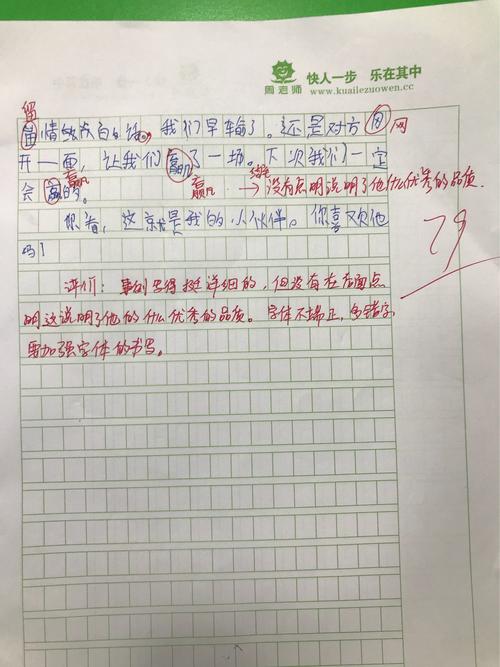 周老师
快人一步 乐在其中
www.kuailezuowen.cc
留
情 我们早输了。还是对方 网
开一面，让我们赢了一场。下次我们一定
会赢的。 赢 赢 结尾没有点明说明了他什么优秀的品质.
你看，这就是我的小伙伴。你喜欢他
吗！
79
评价：事例写得挺详细的，但没有在后面点
明这说明了他的什么优秀的品质。字体不端正，多错字
要加强字体的书写。